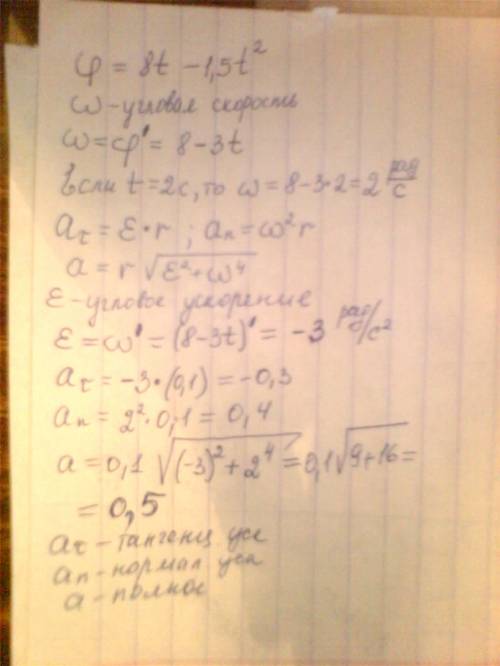 φ = 8t − 1,5t²
ω - угловая скорость
ω = φ' = 8 − 3t
Если t = 2с, то ω = 8 − 3·2 = 2 рад/с
aτ = ε·r ; aₙ = ω²r
a = r √(ε² + ω⁴)
ε - угловое ускорение
ε = ω' = (8 − 3t)' = −3 рад/с²
aτ = −3·(0,1) = −0,3
aₙ = 2²·0,1 = 0,4
a = 0,1 √((−3)² + 2⁴) = 0,1√(9+16) =
= 0,5
aτ - тангенц уск
aₙ - нормал уск
a - полное